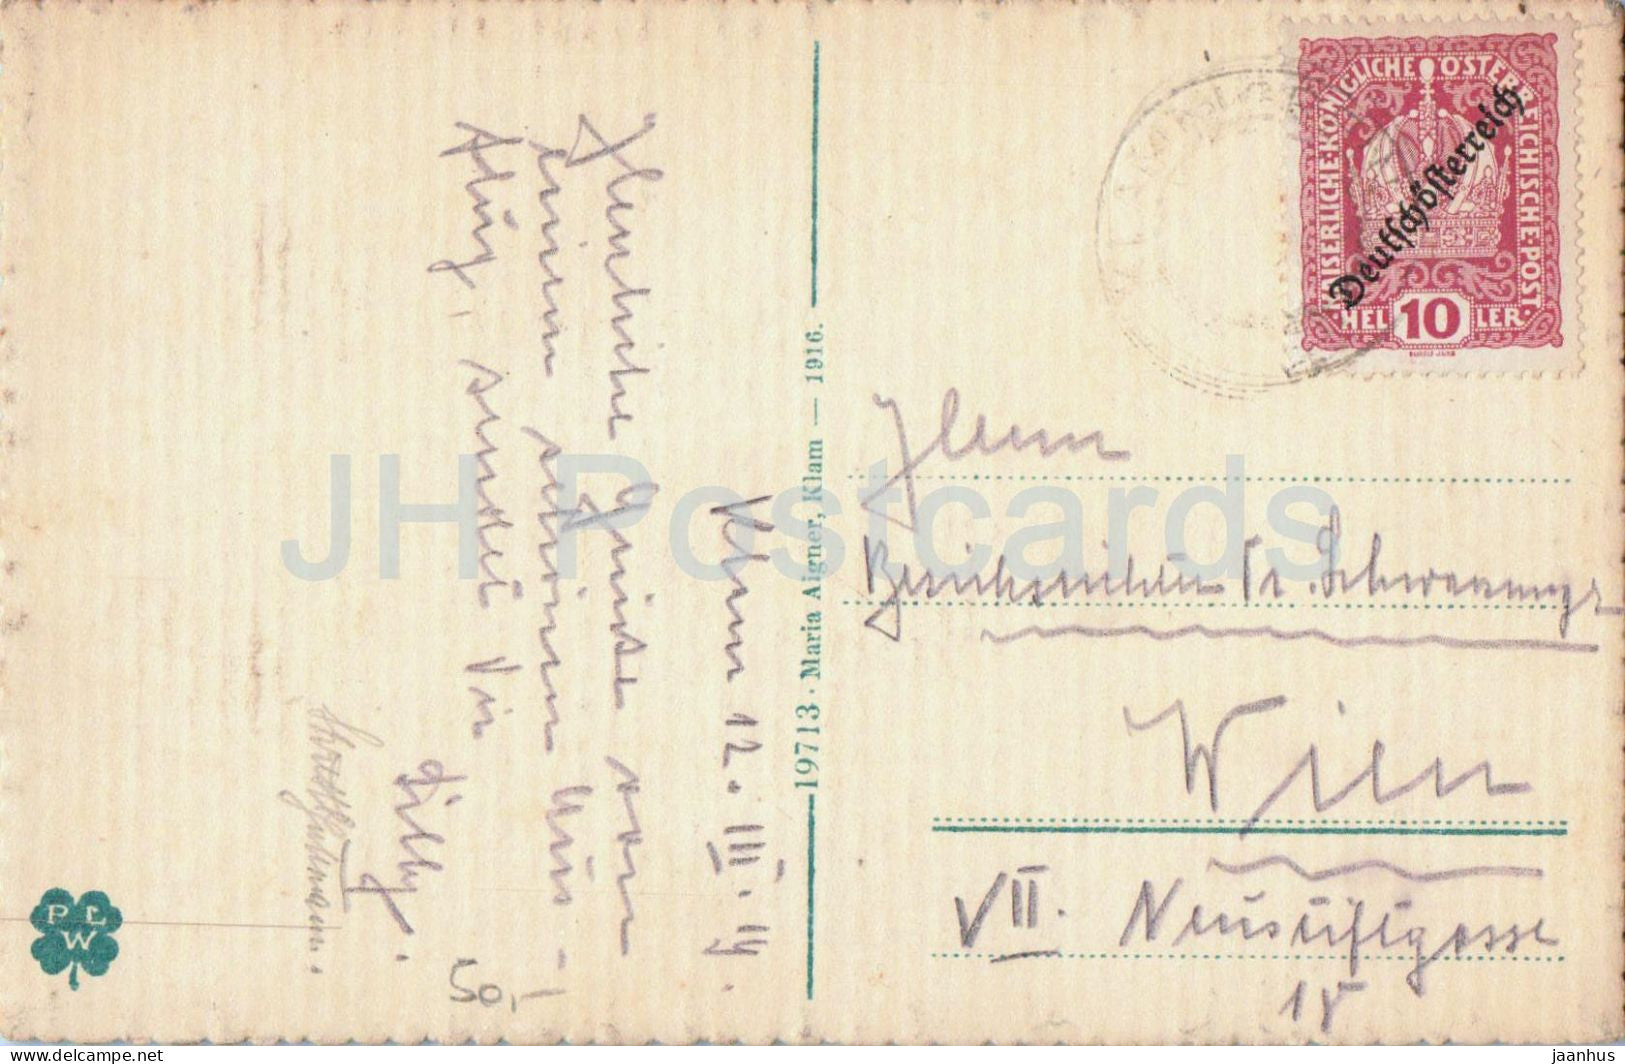 Klam 12. III. 19.
Herzliche Grüße von
einem schönen Aus-
flug, sendet Dir
Dilly.
50.-
19713 · Maria Aigner, Klam — 1916.
PLW
KAISERLICHE KÖNIGLICHE ÖSTERREICHISCHE POST
Deutschösterreich
HEL 10 LER
Herrn
Bezirksrichter Dr.
Wien
VII. Neustiftgasse
JH Postcards
delcampe.net
jaanhus